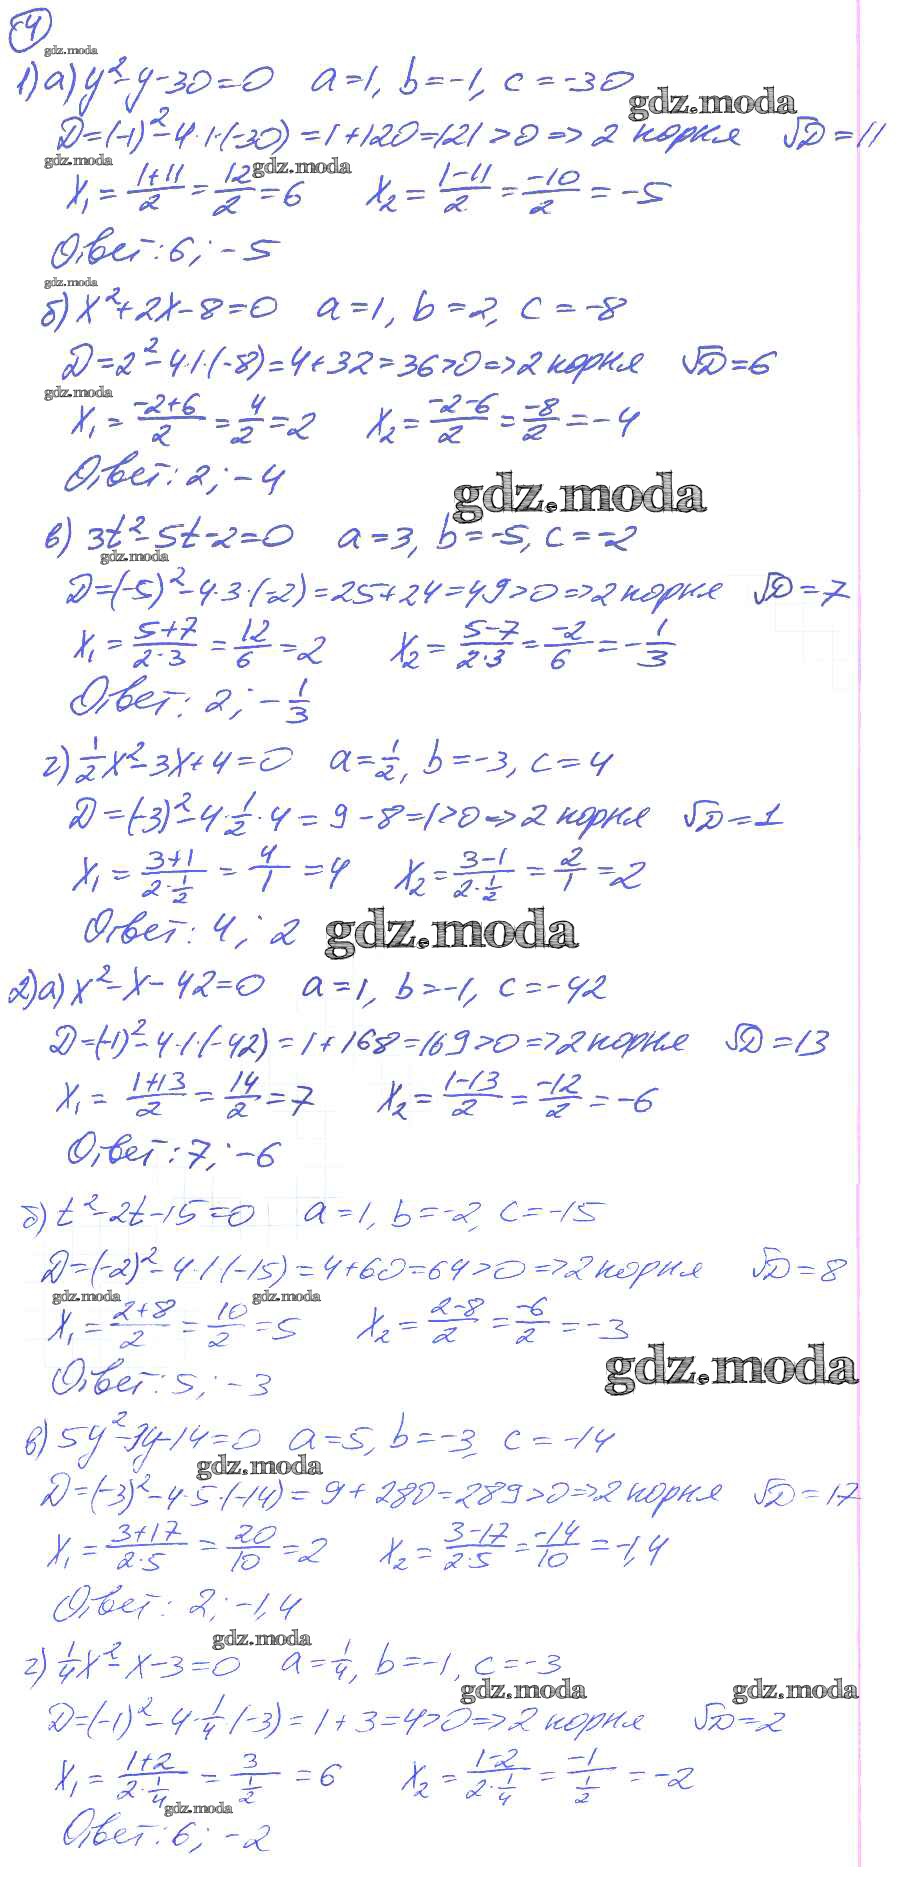 4
gdz.moda
1) а) y² - y - 30 = 0 a = 1, b = -1, c = -30
gdz.moda
D = (-1)² - 4·1·(-30) = 1 + 120 = 121 > 0 => 2 корня √D = 11
gdz.moda gdz.moda
x₁ = (1+11)/2 = 12/2 = 6 x₂ = (1-11)/2 = -10/2 = -5
Ответ: 6; -5
gdz.moda
б) x² + 2x - 8 = 0 a = 1, b = 2, c = -8
D = 2² - 4·1·(-8) = 4 + 32 = 36 > 0 => 2 корня √D = 6
gdz.moda
x₁ = (-2+6)/2 = 4/2 = 2 x₂ = (-2-6)/2 = -8/2 = -4
Ответ: 2; -4
gdz.moda
в) 3t² - 5t - 2 = 0 a = 3, b = -5, c = -2
gdz.moda
D = (-5)² - 4·3·(-2) = 25 + 24 = 49 > 0 => 2 корня √D = 7
x₁ = (5+7)/(2·3) = 12/6 = 2 x₂ = (5-7)/(2·3) = -2/6 = -1/3
Ответ: 2; -1/3
г) 1/2 x² - 3x + 4 = 0 a = 1/2, b = -3, c = 4
D = (-3)² - 4·1/2·4 = 9 - 8 = 1 > 0 => 2 корня √D = 1
x₁ = (3+1)/(2·1/2) = 4/1 = 4 x₂ = (3-1)/(2·1/2) = 2/1 = 2
Ответ: 4; 2 gdz.moda
2) а) x² - x - 42 = 0 a = 1, b = -1, c = -42
D = (-1)² - 4·1·(-42) = 1 + 168 = 169 > 0 => 2 корня √D = 13
x₁ = (1+13)/2 = 14/2 = 7 x₂ = (1-13)/2 = -12/2 = -6
Ответ: 7; -6
б) t² - 2t - 15 = 0 a = 1, b = -2, c = -15
D = (-2)² - 4·1(-15) = 4 + 60 = 64 > 0 => 2 корня √D = 8
gdz.moda gdz.moda
x₁ = (2+8)/2 = 10/2 = 5 x₂ = (2-8)/2 = -6/2 = -3
gdz.moda
Ответ: 5; -3
в) 5y² - 3y - 14 = 0 a = 5, b = -3, c = -14
gdz.moda
D = (-3)² - 4·5·(-14) = 9 + 280 = 289 > 0 => 2 корня √D = 17
x₁ = (3+17)/(2·5) = 20/10 = 2 x₂ = (3-17)/(2·5) = -14/10 = -1,4
Ответ: 2; -1,4
gdz.moda
г) 1/4 x² - x - 3 = 0 a = 1/4, b = -1, c = -3
gdz.moda gdz.moda
D = (-1)² - 4·1/4 (-3) = 1 + 3 = 4 > 0 => 2 корня √D = 2
x₁ = (1+2)/(2·1/4) = 3/(1/2) = 6 x₂ = (1-2)/(2·1/4) = -1/(1/2) = -2
gdz.moda
Ответ: 6; -2